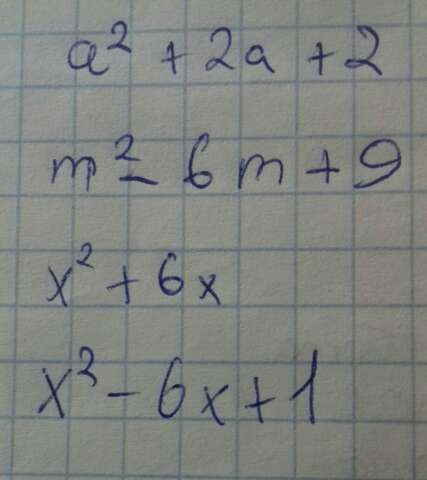 a² + 2a + 2
m² - 6m + 9
x² + 6x
x² - 6x + 1